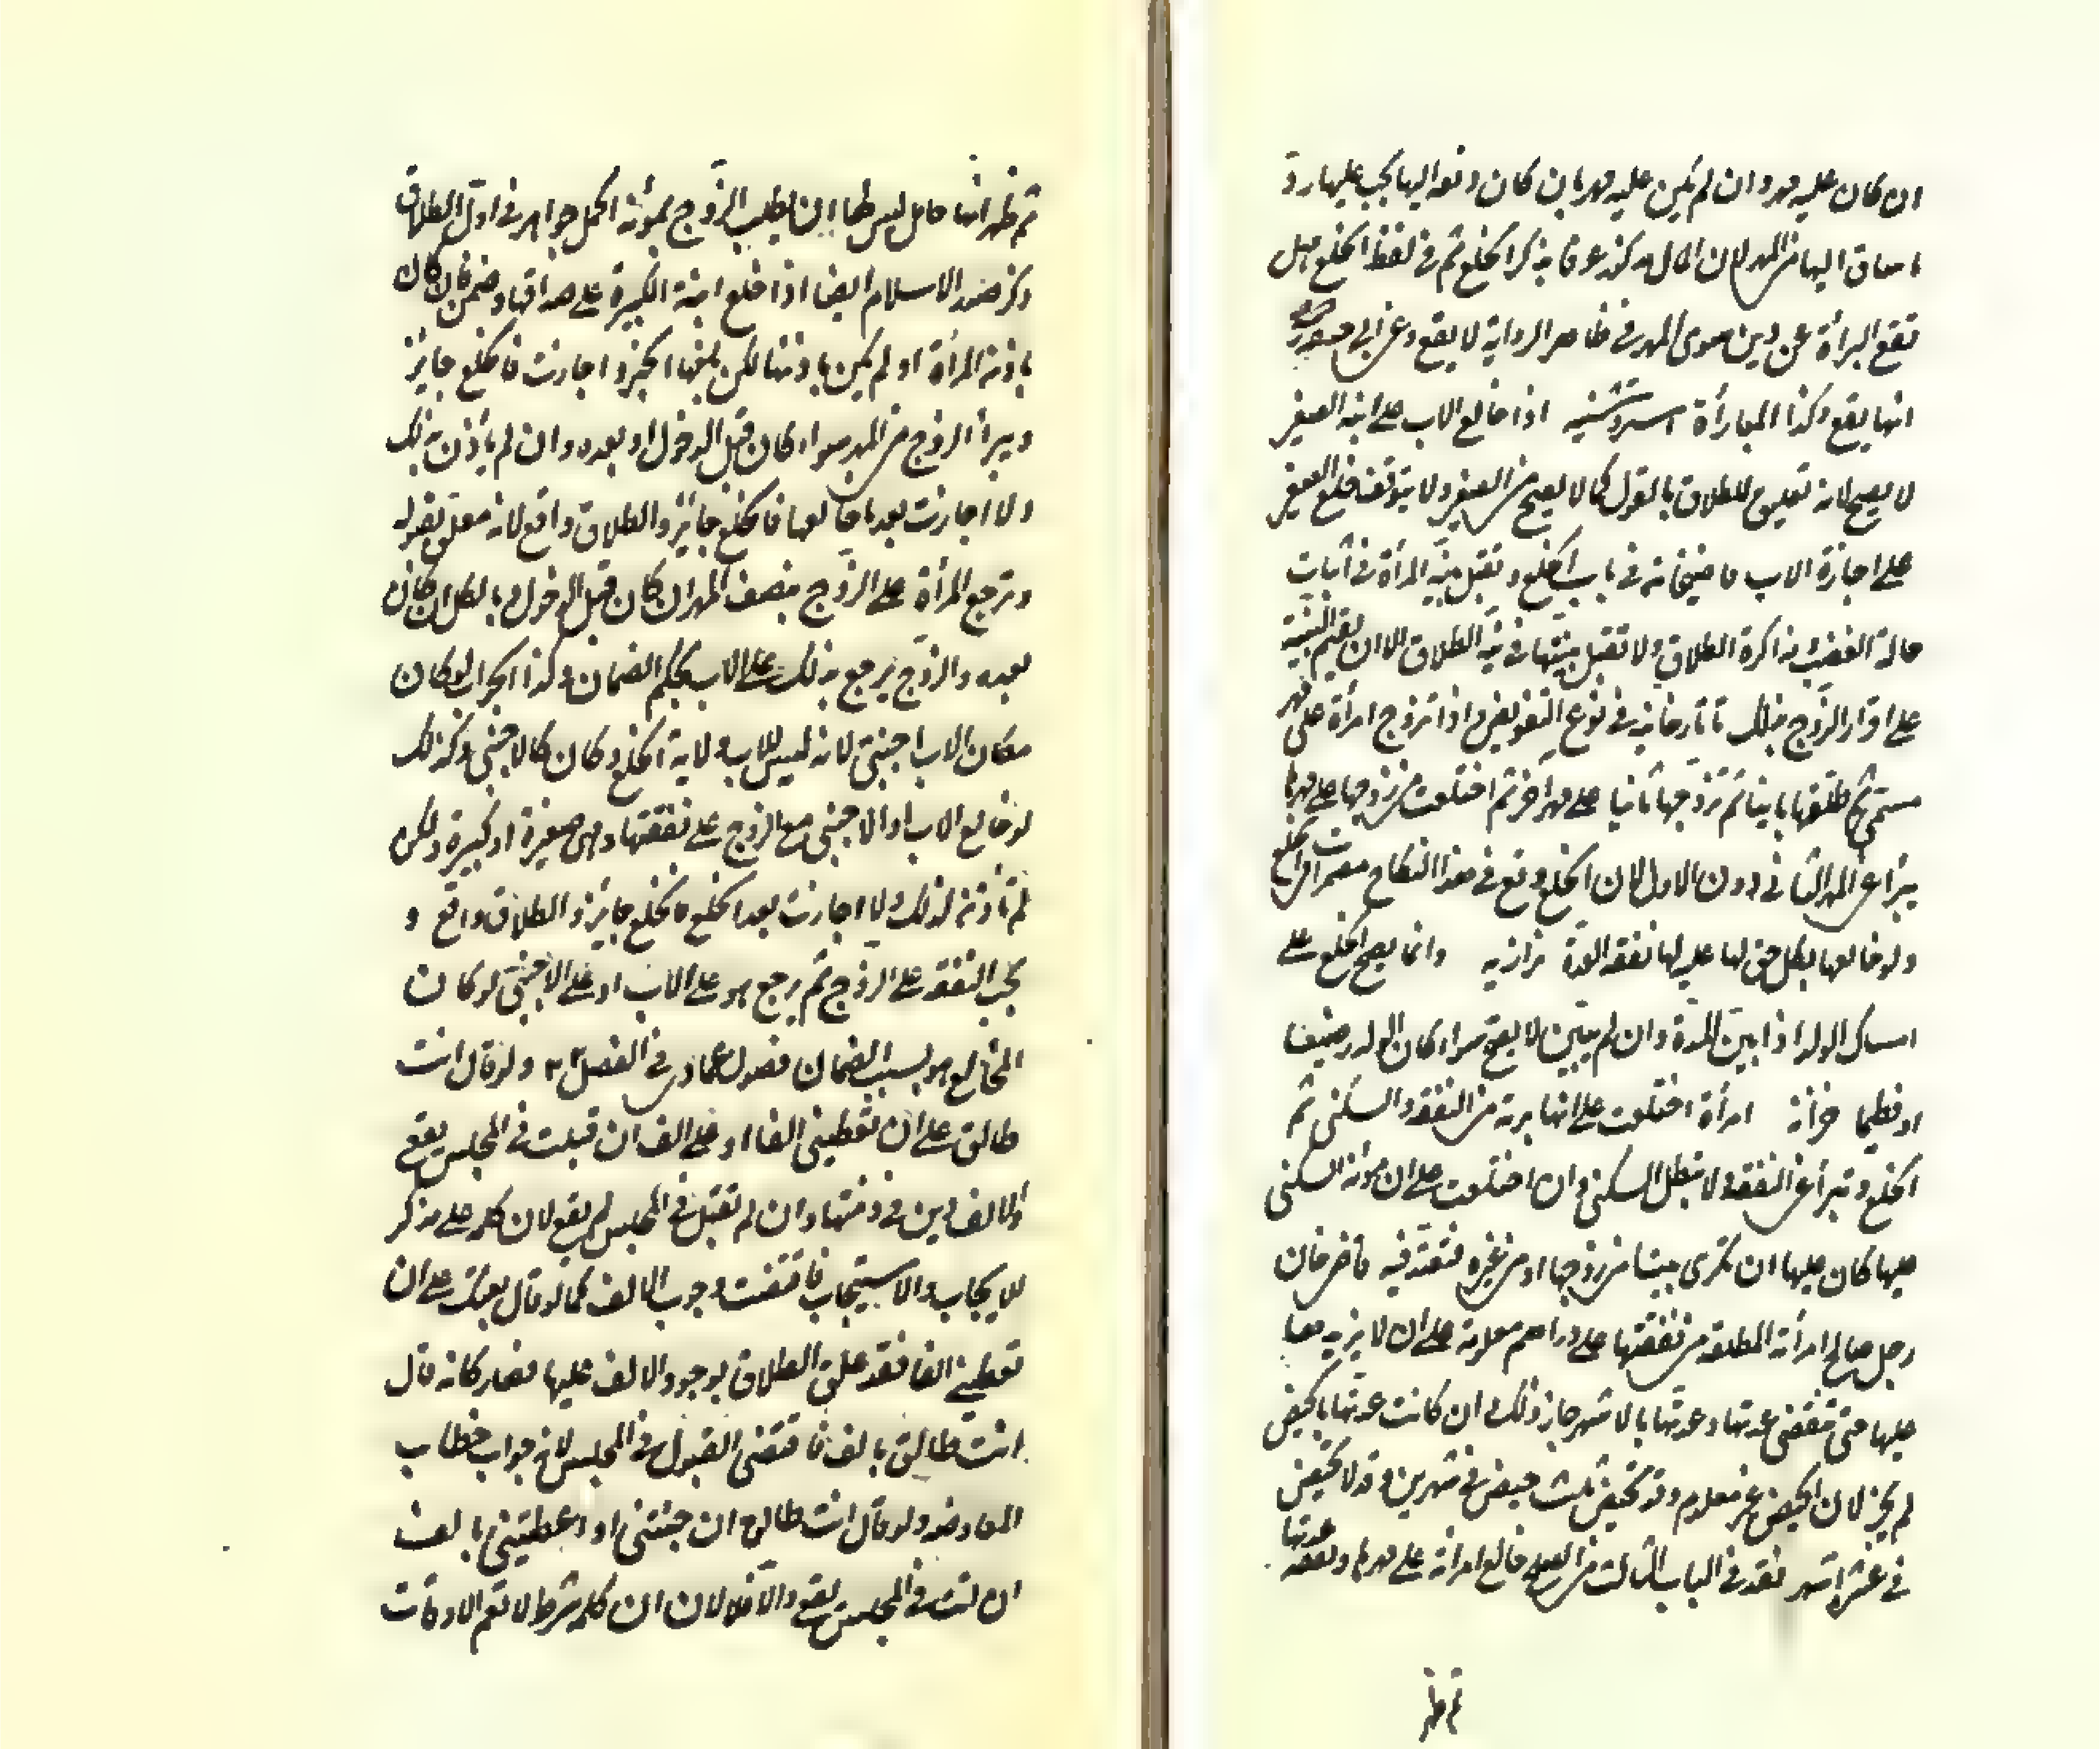 ان كان عليه مهر وان لم يكن عليه مهر بان كان دفعه اليها يجب عليها ردّ
ما ساق اليها من المهر لان المال مذكور عرفا بذكر الخلع ثم فى لفظ الخلع هل
تقع البرأة عن دين سوى المهر فى ظاهر الرواية لا يقع وعن ابى حنيفة
انها يقع وكذا المبارأة اسروشنيه اذا خالع الاب على ابنه الصغير
لا يصح لانه تعليق للطلاق بالقول كما لا يصح من الصغير ولا يتوقف خلع الصغير
على اجازة الاب قاضيخانه فى باب الخلع وتقبل بينة المرأة فى اثبات
حالة الغضب ومذاكرة الطلاق ولا تقبل بينتها فى نية الطلاق الا ان تقيم البينة
على اقرار الزوج بذلك تاتارخانيه فى نوع التفويض واذا تزوج امرأة على مهر
مسمّى ثم طلقها باينا ثم تزوجها ثانيا على مهر آخر ثم اختلعت من زوجها على مهرها
يبرأ عن المهر الثانى دون الاول لان الخلع وقع فى هذا النكاح
ولو خالعها بكل حق لها عليه لها نفقة العدة بزازيه وانما يصح الخلع على
امساك الولد اذا بيّن المدة وان لم يبيّن لا يصح سواء كان الولد رضيعا
او فطيما خزانه امرأة اختلعت على انها برية من النفقة والسكنى ثم
الخلع وتبرأ عن النفقة ولا تبطل السكنى وان اختلعت على ان مؤنة السكنى
عليها كان عليها ان تكترى بيتا من زوجها او من غيره فتعتد فيه قاضيخان
رجل صالح امرأته المطلقة من نفقتها على دراهم معلومة على ان لا يزيدها
عليها حتى تنقضى عدتها وعدتها بالاشهر جاز ذلك وان كانت عدتها بالحيض
لم يجز لان الحيض غير معلوم وقد تحيض ثلث حيض فى شهرين وقد لا تحيض
فى عشرة اشهر نقد فى الباب الثالث من الصلح خالع امرأته على مهرها ونفقة عدتها
ثم ظهر
ثم ظهر انها حامل ليس لها ان يطلب الزوج بمؤنة الحمل جواهر فى اول الطلاق
ذكر صدر الاسلام ايضا اذا خلع ابنته الكبيرة على صداقها وضمن فان كان
باذن المرأة او لم يكن باذنها لكن بلغها الخبر واجازت فالخلع جايز
ويبرأ الزوج من المهر سواء كان قبل الدخول او بعده وان لم يأذن بذلك
ولا اجازت بعدما خالعها فالخلع جائز والطلاق واقع لانه معلق بقوله
وترجع المرأة على الزوج بنصف المهر ان كان قبل الدخول وبالكل ان كان
بعده والزوج يرجع بذلك على الاب بحكم الضمان وكذا الجواب لو كان
مكان الاب اجنبى لانه ليس للاب ولاية الخلع وكان كالاجنبى وكذلك
لو خالع الاب او الاجنبى مع الزوج على نفقتها وهى صغيرة او كبيرة ولكن
لم تأذن بذلك ولا اجازت بعد الخلع فالخلع جايز والطلاق واقع و
يجب النفقة على الزوج ثم يرجع هو على الاب او على الاجنبى لو كان
المخالع هو بسبب الضمان فصول عمادى فى الفصل ٢٠ ولو قال انت
طالق على ان تعطينى الفا او على الف ان قبلت فى المجلس يقع
والالف دين فى ذمتها وان لم تقبل فى المجلس لم يقع لان كلمة على مذكر
للايجاب والاستيجاب فاقتضت وجوب الالف كما لو قال بعتك على ان
تعطينى الفا فقد علق الطلاق بوجود الالف عليها فصار كانه قال
انت طالق بالف فاقتضى القبول فى المجلس لانه جواب خطاب
المعاوضه ولو قال انت طالق ان جئتنى او اعطيتنى بالف
ان اتت فى المجلس يقع والا فلا لان ان كلمة شرط لا تعم الاوقات